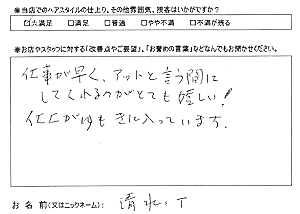 ※当店でのヘアスタイルの仕上り、その他雰囲気、接客はいかがですか?
□大満足 □満足 □普通 □やや不満 □不満が残る
※お店やスタッフに対する「改善点やご要望」、「お誉めの言葉」などなんでもお聞かせください。
仕事が早く、アットと言う間に
してくれるのがとても嬉しい!
仕上がりもきに入っています.
お 名 前(又はニックネーム): 清水.T